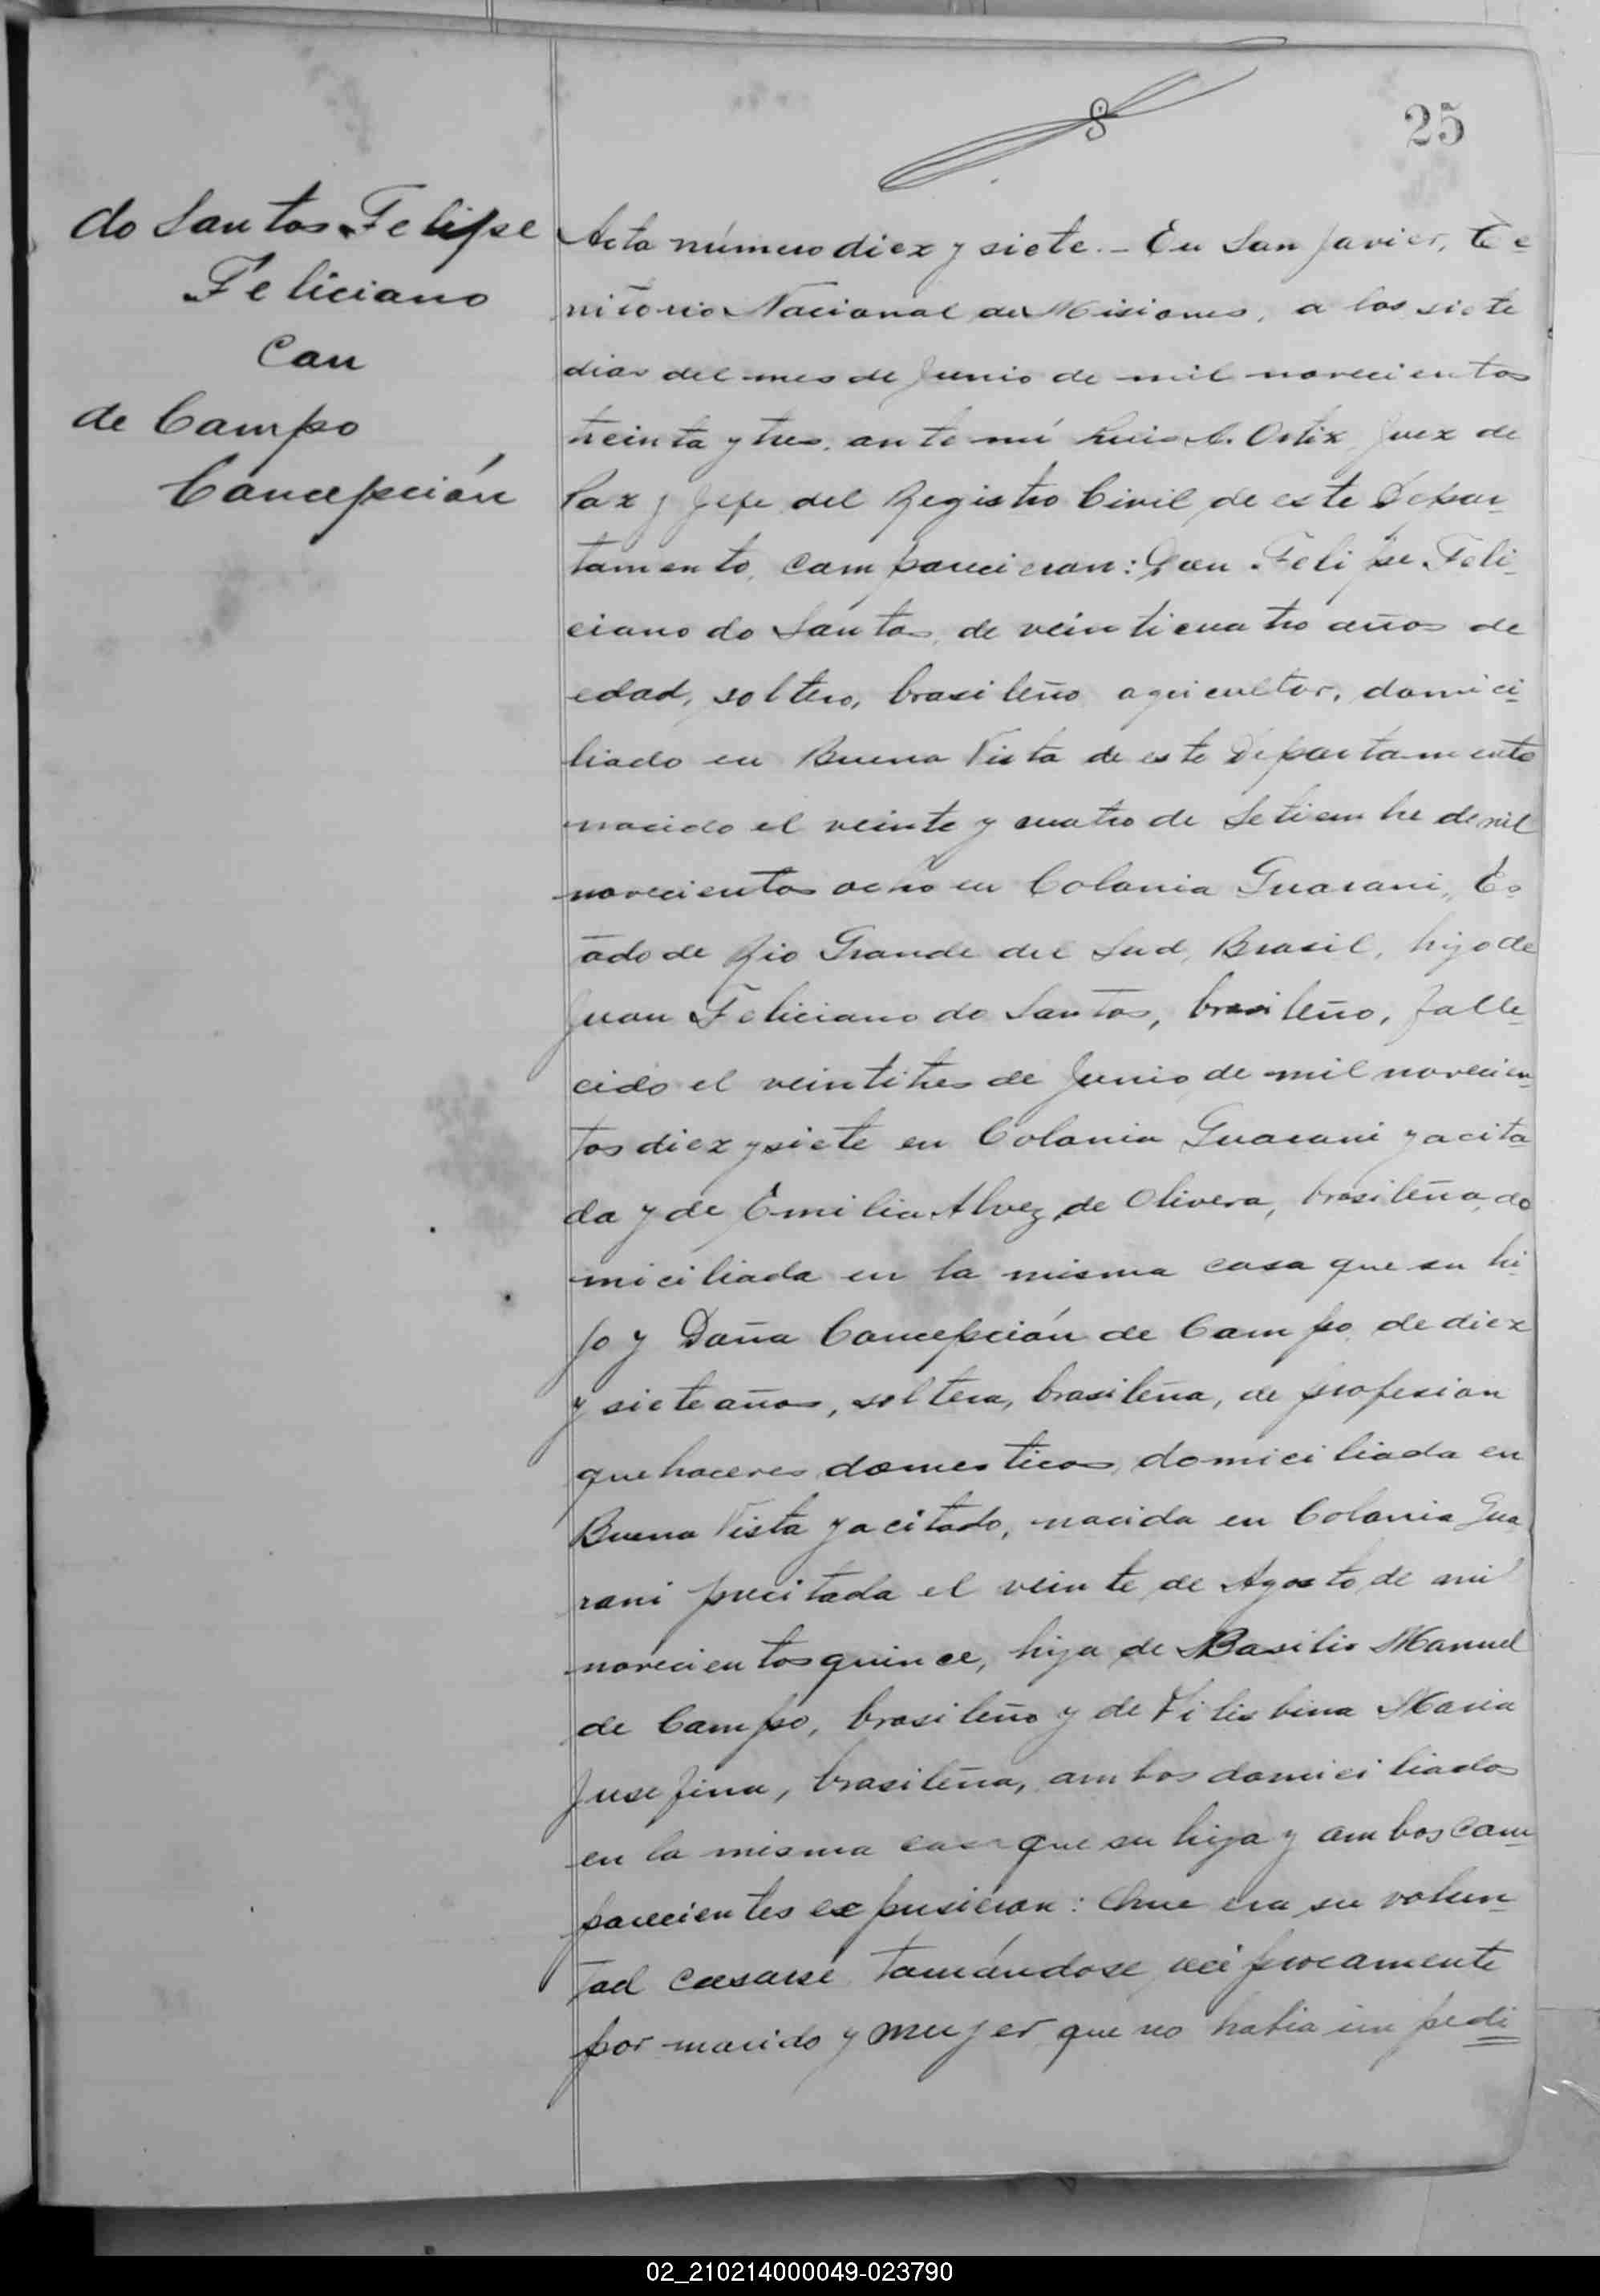 25
do Santos Felipe
Feliciano
Con
de Campo
Concepción
Acta número diez y siete. – En San Javier, Te-
rritorio Nacional de Misiones, a los siete
dias del mes de Junio de mil novecientos
treinta y tres, ante mí Luis A. Ortiz Juez de
Paz y Jefe del Registro Civil de este Depar-
tamento, comparecieron: Don Felipe Feli-
ciano do Santos, de veinticuatro años de
edad, soltero, brasileño agricultor, domici-
liado en Buena Vista de este Departamento
nacido el veinte y cuatro de Setiembre de mil
novecientos ocho en Colonia Guarani, Es-
tado de Rio Grande del Sud, Brasil, hijo de
Juan Feliciano do Santos, brasileño, falle-
cido el veintitres de Junio de mil novecien-
tos diez y siete en Colonia Guarani ya cita
da y de Emilia Alvez de Olivera, brasileña, do
miciliada en la misma casa que su hi-
jo y Doña Concepción de Campo de diez
y siete años, soltera, brasileña, de profesion
quehaceres domesticos, domiciliada en
Buena Vista ya citado, nacida en Colonia Gua
rani precitada el veinte de Agosto de mil
novecientos quince, hija de Basilio Manuel
de Campo, brasileño y de Filisbina Maria
Jusefina, brasileña, ambos domiciliados
en la misma casa que su hija y ambos com-
parecientes expusieron: Que era su volun-
tad casarse tomándose reciprocamente
por marido y mujer que no habia impedi
02_210214000049-023790